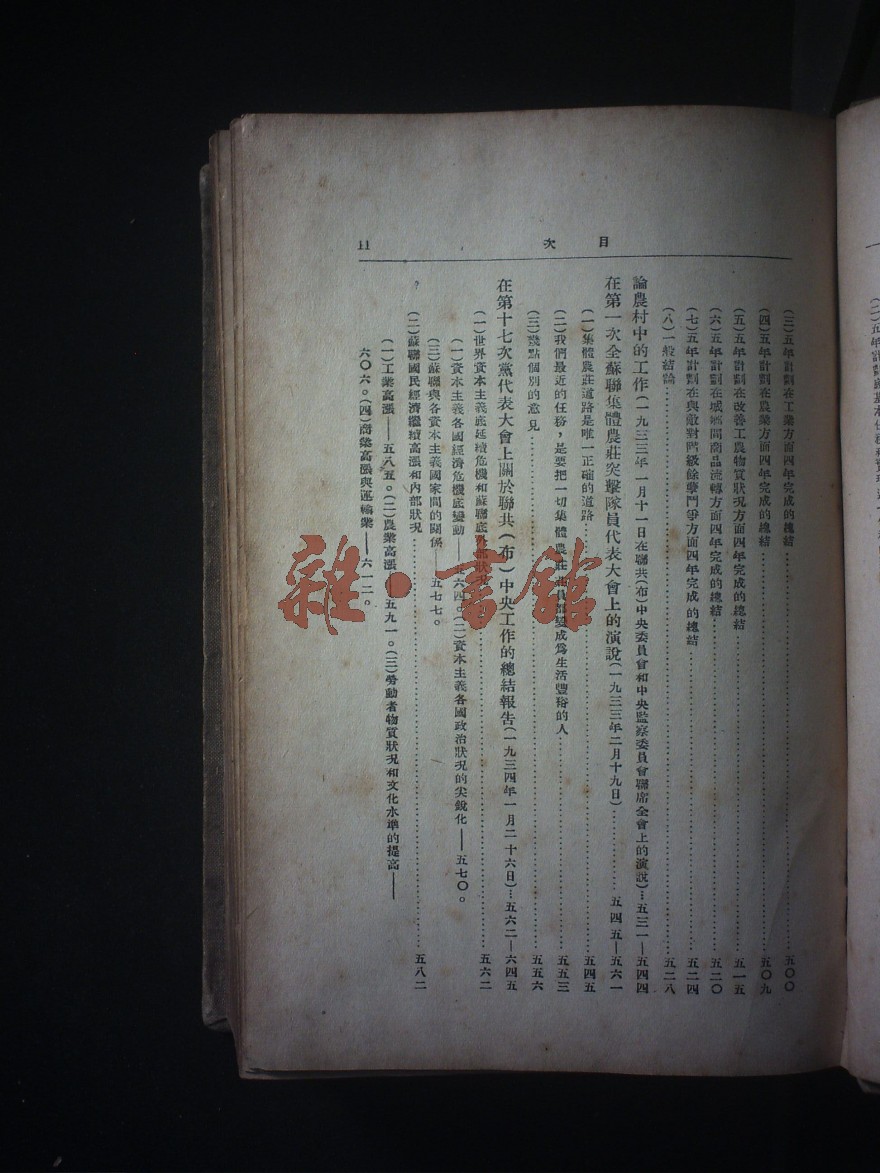 目次
11
(三)五年計劃在工業方面四年完成的總結……五〇〇
(四)五年計劃在農業方面四年完成的總結……五〇九
(五)五年計劃在改善工農物質狀況方面四年完成的總結……五一五
(六)五年計劃在城鄉間商品流轉方面四年完成的總結……五二〇
(七)五年計劃在與敵對階級餘孽鬥爭方面四年完成的總結……五二四
(八)一般結論……五二八
論農村中的工作(一九三三年一月十一日在聯共(布)中央委員會和中央監察委員會聯席全會上的演說)…五三一—五四四
在第一次全蘇聯集體農莊突擊隊員代表大會上的演說(一九三三年二月十九日)……五四五—五六一
(一)集體農莊道路是唯一正確的道路……五四五
(二)我們最近的任務,是要把一切集體農莊莊員都變成爲生活豐裕的人……五五三
(三)幾點個別的意見……五五六
在第十七次黨代表大會上關於聯共(布)中央工作的總結報告(一九三四年一月二十六日)…五六二—六四五
(一)世界資本主義底延續危機和蘇聯底外部狀況……五六二
(一)資本主義各國經濟危機底變動——五六四。(二)資本主義各國政治狀況的尖銳化——五七〇。
(三)蘇聯與各資本主義國家間的關係——五七七。
(二)蘇聯國民經濟繼續高漲和內部狀況……五八二
(一)工業高漲——五八五。(二)農業高漲——五九一。(三)勞動者物質狀況和文化水準的提高——
六〇六。(四)商業高漲與運輸業——六一二。
雜·書館